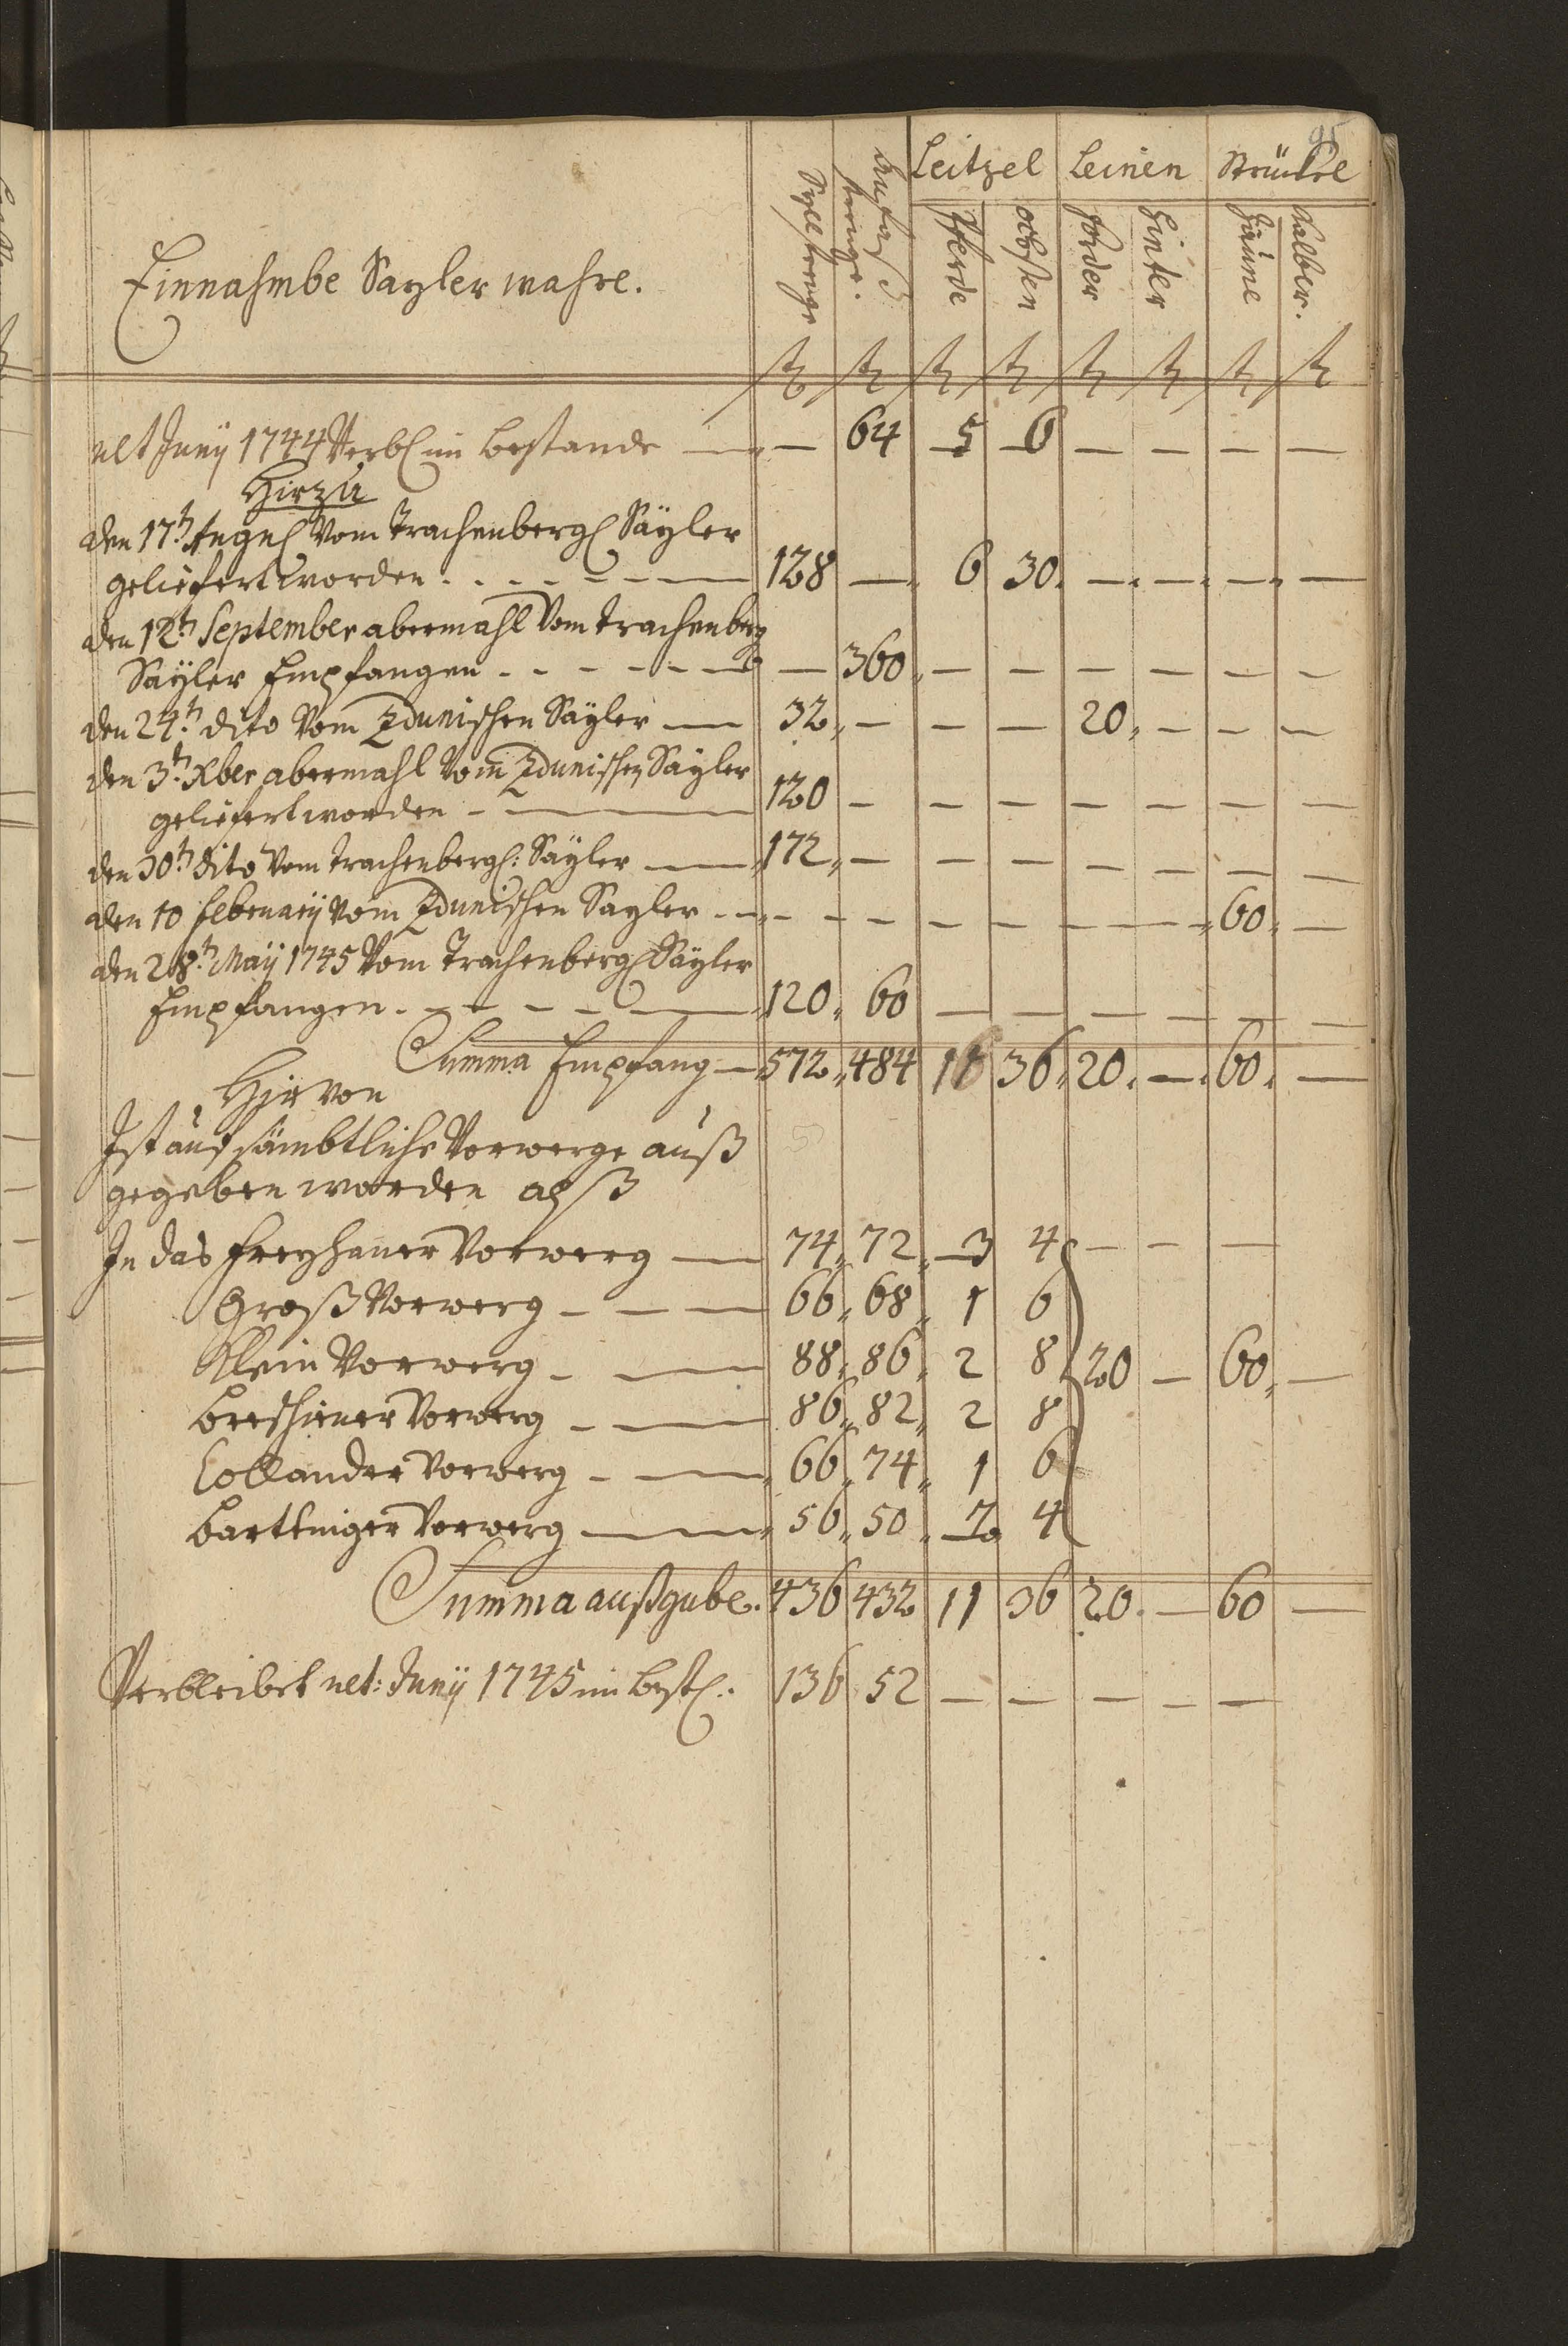 95
Leitzel Leinen Strücke
Pferde ochsen forder hinter Zäune Kalber.
Einnahmbe Sayler wahre.
ult Junÿ 1744 Verbl im bestande — — 64 5 6 — — — —
Hirzu
den 17t. Augus vom Trachenberg Säyler
geliefert worden 128 — 6 30. — — — —
den 12t. September abermahl vom trachenberg
Säyler Empfangen — 360 — — — — — —
den 24t. dito vom Zdunischen Säyler — 32 — — — 20 — — —
den 3t. Xber abermahl vom Zdunischen Säyler
geliefert worden — 120 — — — — — — —
den 30t. dito vom trachenberg: Säyler — 172 — — — — — — —
den 10 februarÿ vom Zdunischen Sayler — — — — — — — 60 —
den 28t. Maÿ 1745 vom Trachenberg Säyler
Empfangen 120 60 — — — — — —
Summa Empfang — 572 484 11 36 20. — 60. —
Hirvon
Ist auf sämbtliche Vorwerge auß
gegeben worden alß
In das freyhaner Vorwerg — 74 72 3 4 — — —
Groß Vorwerg — 66 68 1 6
Klein Vorwerg — 88 86 2 8 20 — 60 —
breschiner Vorwerg — 86 82 2 8
Collander Vorwerg — 66 74 1 6
bartniger Vorwerg — 56 50 2 4
Summa außgabe. 436 432 11 36 20. — 60 —
Verbleibet ult: Junÿ 1745 im best: 136 52 — — — — —